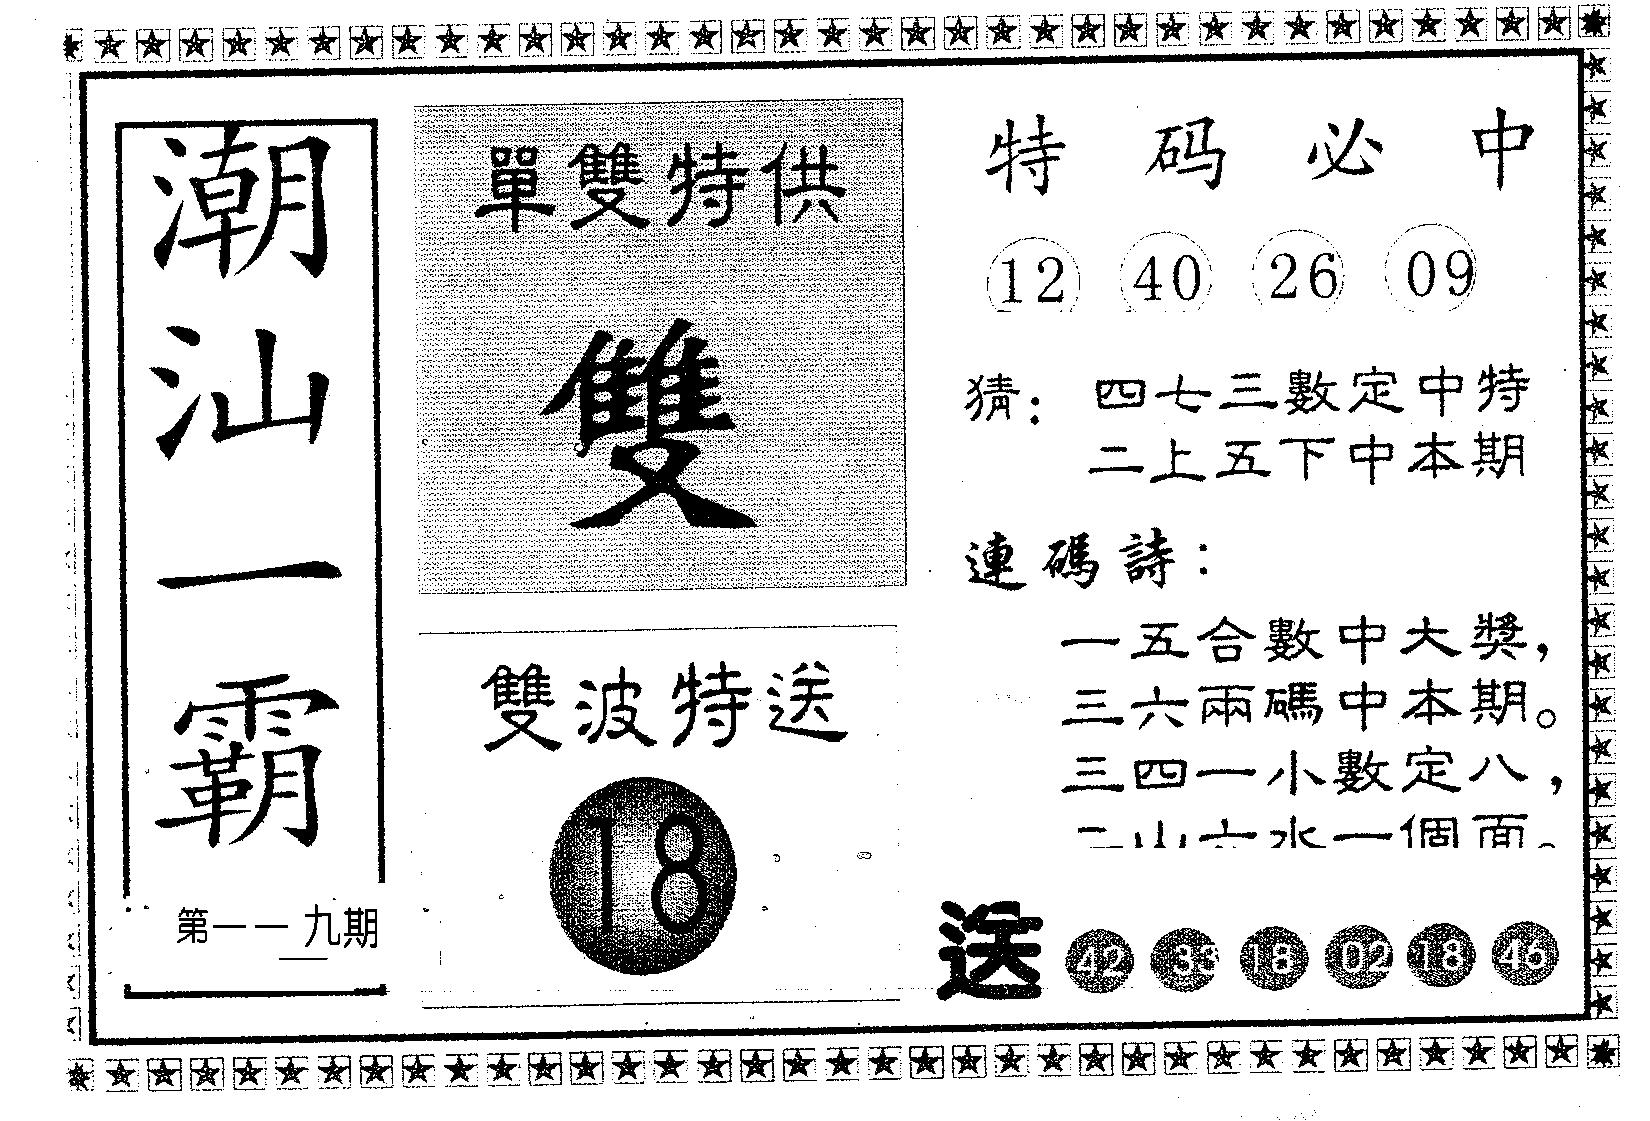 潮汕一霸
第一一九期
單雙特供
雙
雙波特送
18
特码必中
12 40 26 09
猜：四七三數定中特
二上五下中本期
連碼詩：
一五合數中大獎，
三六兩碼中本期。
三四一小數定八，
二山六水一個面。
送 42 33 18 02 18 46